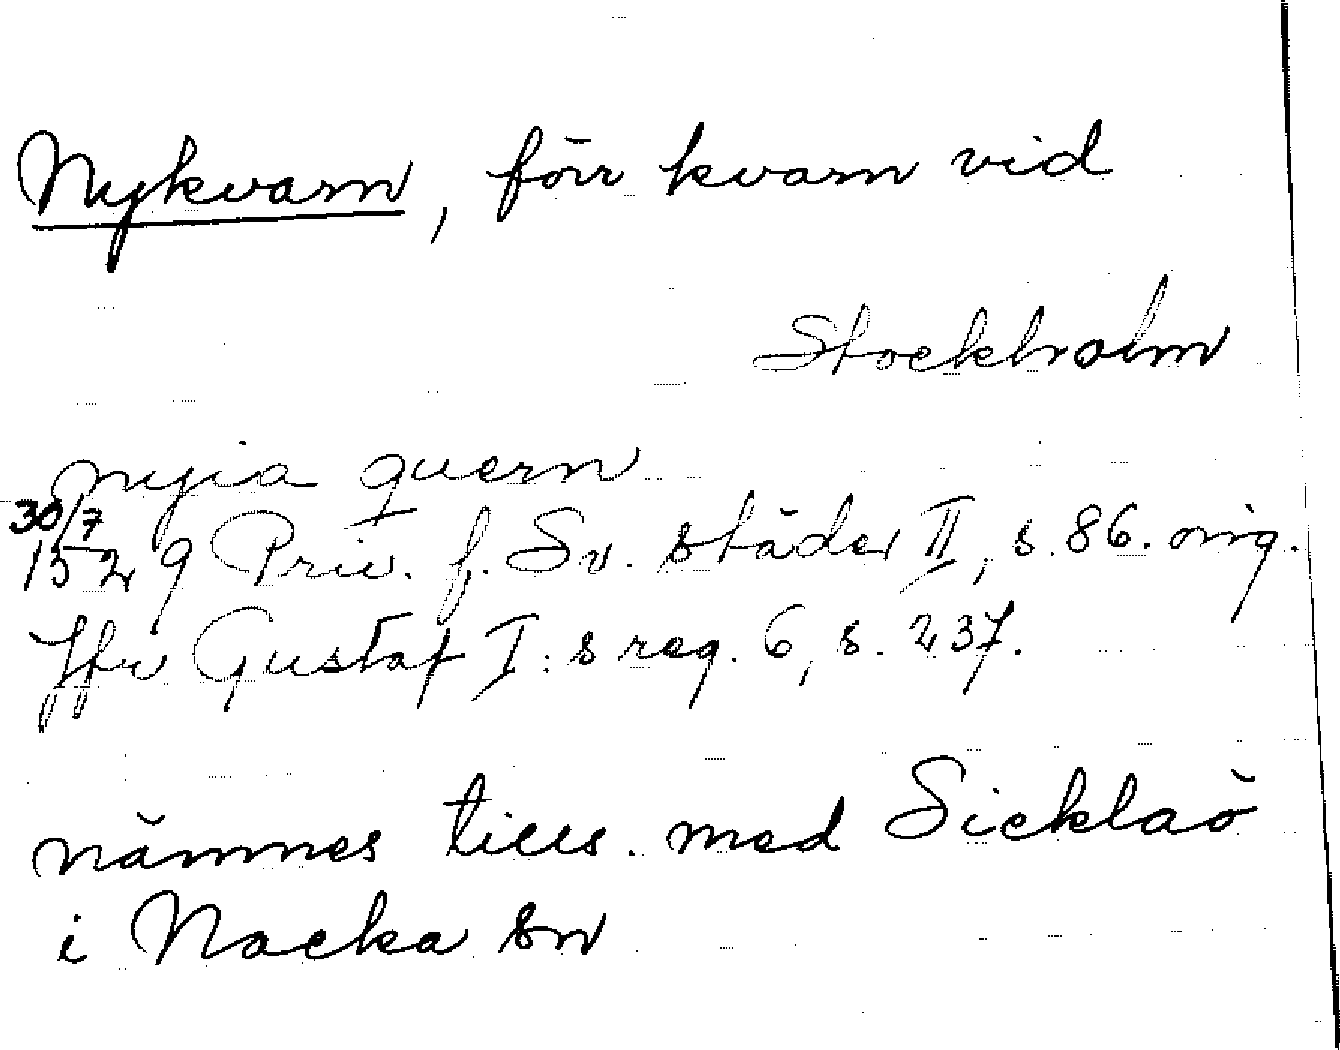 Nykvarn, förr kvarn vid
Stockholm
nyia quern
30/7
1529 Priv. f. Sv. städer II, s. 86. orig.
Jfr Gustaf I:s reg. 6, s. 237.
nämnes tills. med Sicklaö
i Nacka sn